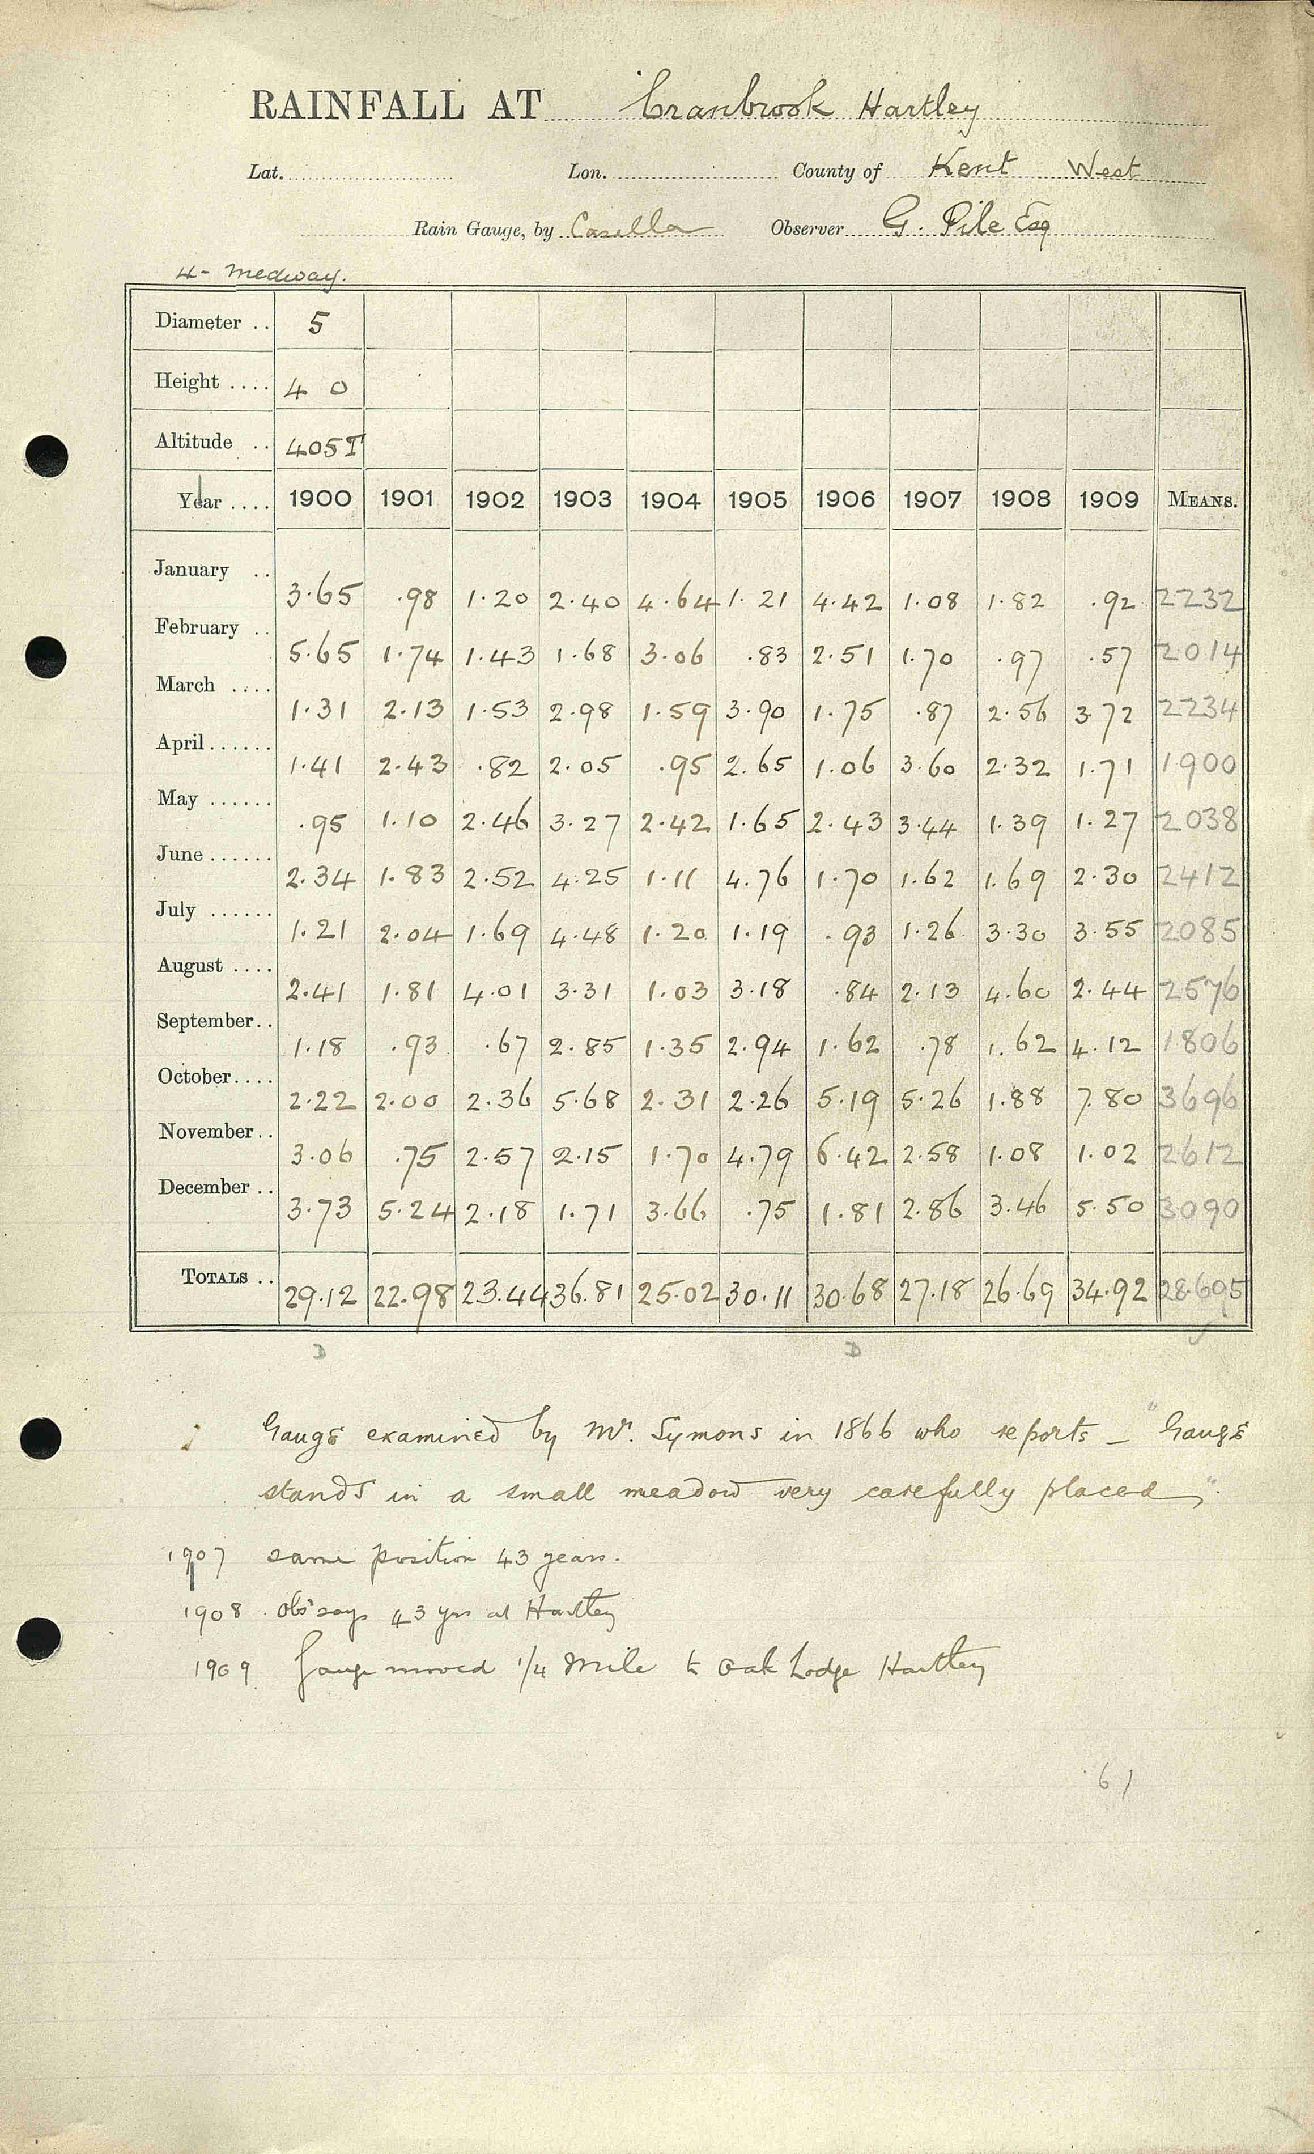 RAINFALL AT Cranbrook Hartley
Lat. Lon. County of Kent West
Rain Gauge, by Casella Observer G. Pile Esq
4- Medway.
Diameter .. 5
Height .... 4 0
Altitude .. 405T
Year .... 1900 1901 1902 1903 1904 1905 1906 1907 1908 1909 MEANS.
January .. 3.65 .98 1.20 2.40 4.64 1.21 4.42 1.08 1.82 .92 2232
February .. 5.65 1.74 1.43 1.68 3.06 .83 2.51 1.70 .97 .57 2014
March .... 1.31 2.13 1.53 2.98 1.59 3.90 1.75 .87 2.56 3.72 2234
April ...... 1.41 2.43 .82 2.05 .95 2.65 1.06 3.60 2.32 1.71 1900
May ...... .95 1.10 2.46 3.27 2.42 1.65 2.43 3.44 1.39 1.27 2038
June ...... 2.34 1.83 2.52 4.25 1.11 4.76 1.70 1.62 1.69 2.30 2412
July ...... 1.21 2.04 1.69 4.48 1.20 1.19 .93 1.26 3.30 3.55 2085
August .... 2.41 1.81 4.01 3.31 1.03 3.18 .84 2.13 4.60 2.44 2576
September.. 1.18 .93 .67 2.85 1.35 2.94 1.62 .78 1.62 4.12 1806
October.... 2.22 2.00 2.36 5.68 2.31 2.26 5.19 5.26 1.88 7.80 3696
November.. 3.06 .75 2.57 2.15 1.70 4.79 6.42 2.58 1.08 1.02 2612
December .. 3.73 5.24 2.18 1.71 3.66 .75 1.81 2.86 3.46 5.50 3090
TOTALS .. 29.12 22.98 23.44 36.81 25.02 30.11 30.68 27.18 26.69 34.92 28.695
D D
Gauge examined by Mr. Symons in 1866 who reports - "Gauge
stands in a small meadow very carefully placed"
1907 same position 43 years.
1908 Obsr says 43 yrs at Hartley
1909 Gauge moved 1/4 Mile to Oak Lodge Hartley
.61